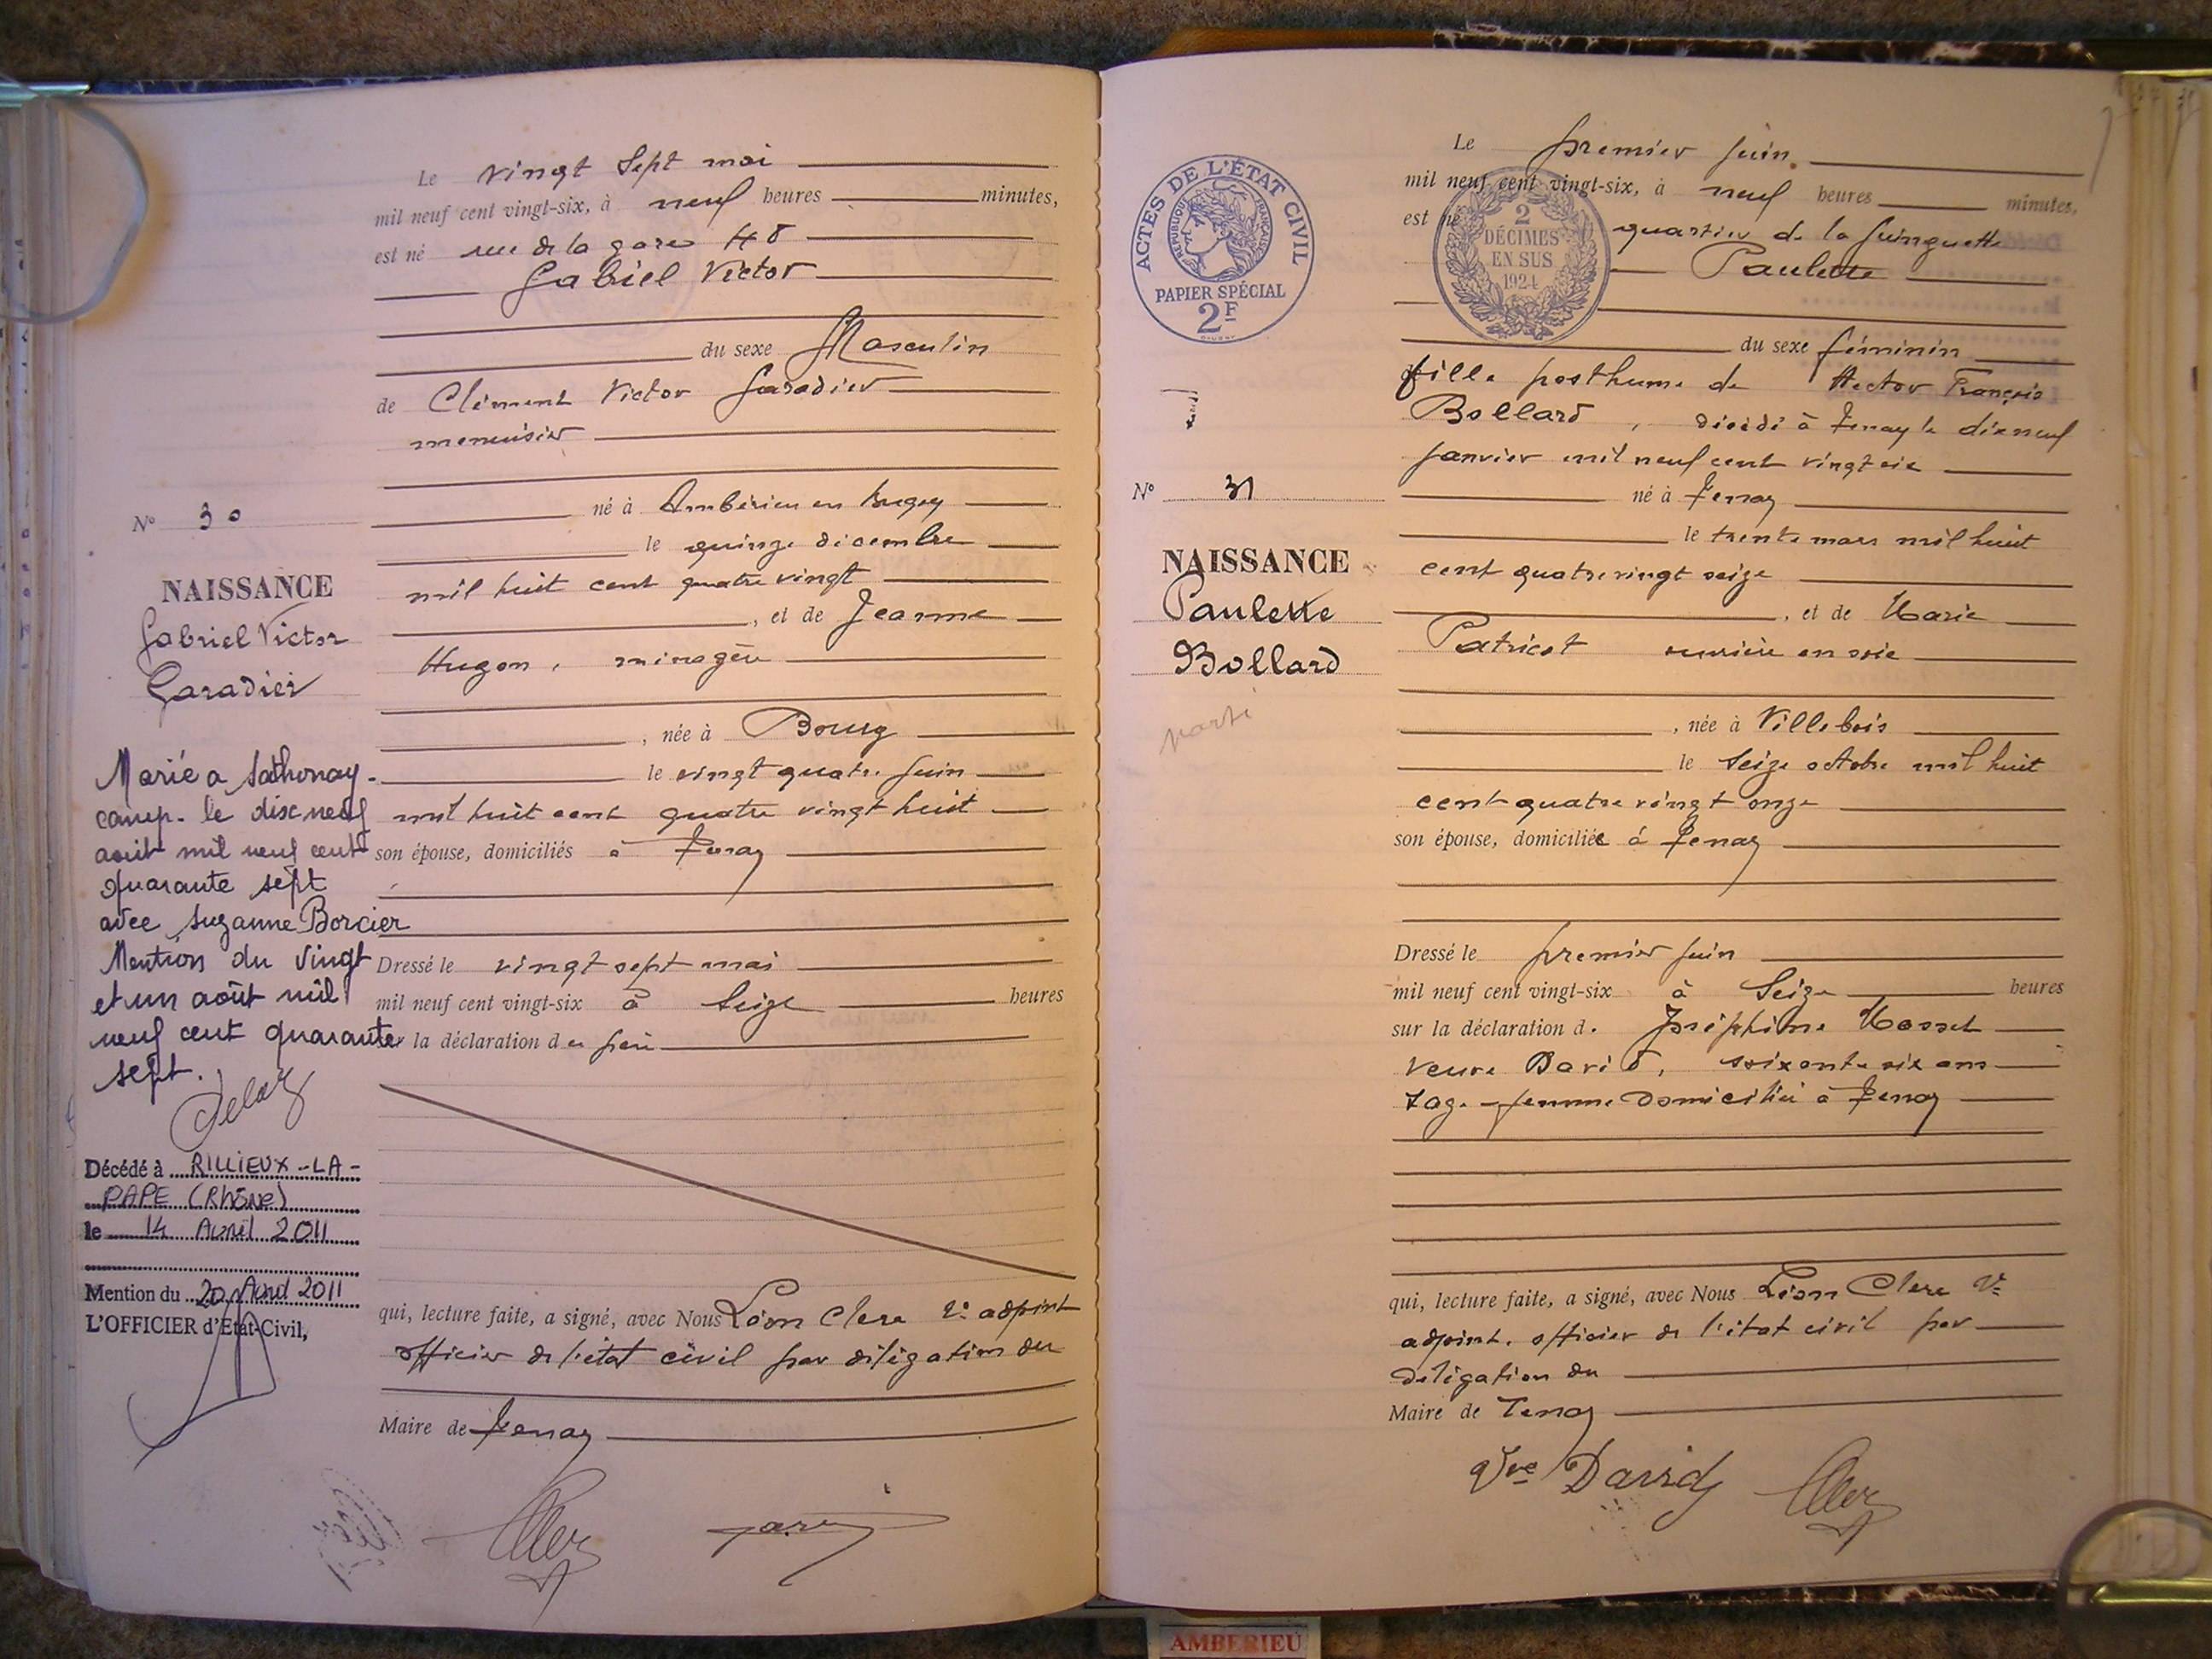 Le vingt sept mai
mil neuf cent vingt-six, à neuf heures minutes,
est né rue de la gare 48
Gabiel Victor
du sexe Masculin
de Clément Victor Garadier
menuisier
né à Ambérieu en Bugey
le quinze décembre
mil huit cent quatre vingt
, et de Jeanne
Hugon, ménagère
, née à Bourg
le vingt quatre juin
mil huit cent quatre vingt huit
son épouse, domiciliés à Tenay
Dressé le vingt sept mai
mil neuf cent vingt-six à Seize heures
la déclaration du père
qui, lecture faite, a signé, avec Nous Léon Clerc 2e adjoint
officier de l'état civil par délégation du
Maire de Tenay
No 30
NAISSANCE
Gabriel Victor
Garadier
Marié a Sathonay-
camp. le dix neuf
août mil neuf cent
quarante sept
avec Suzanne Borcier
Mention du vingt
et un août mil
neuf cent quarante
sept.
Décédé à RILLIEUX-LA-
PAPE (Rhône)
le 14 Avril 2011
Mention du 20 Avril 2011
L'OFFICIER d'Etat-Civil,
ACTES DE L'ÉTAT CIVIL
RÉPUBLIQUE FRANÇAISE
PAPIER SPÉCIAL
2F
2
DÉCIMES
EN SUS
1924
No 31
NAISSANCE
Paulette
Bollard
Le premier juin
mil neuf cent vingt-six, à neuf heures minutes,
est né quartier de la Guinguette
Paulette
du sexe féminin
fille posthume de Hector François
Bollard, décédé à Tenay le dix neuf
janvier mil neuf cent vingt six
né à Tenay
le trente mars mil huit
cent quatre vingt seize
, et de Marie
Patricot ouvrière en soie
, née à Villebois
le Seize octobre mil huit
cent quatre vingt onze
son épouse, domiciliée à Tenay
Dressé le premier juin
mil neuf cent vingt-six à Seize heures
sur la déclaration de Joséphine Mosset
Veuve David, soixante six ans
Sage-femme domiciliée à Tenay
qui, lecture faite, a signé, avec Nous Léon Clerc 2e
adjoint. officier de l'état civil par
délégation du
Maire de Tenay
Vve David Clerc
AMBERIEU